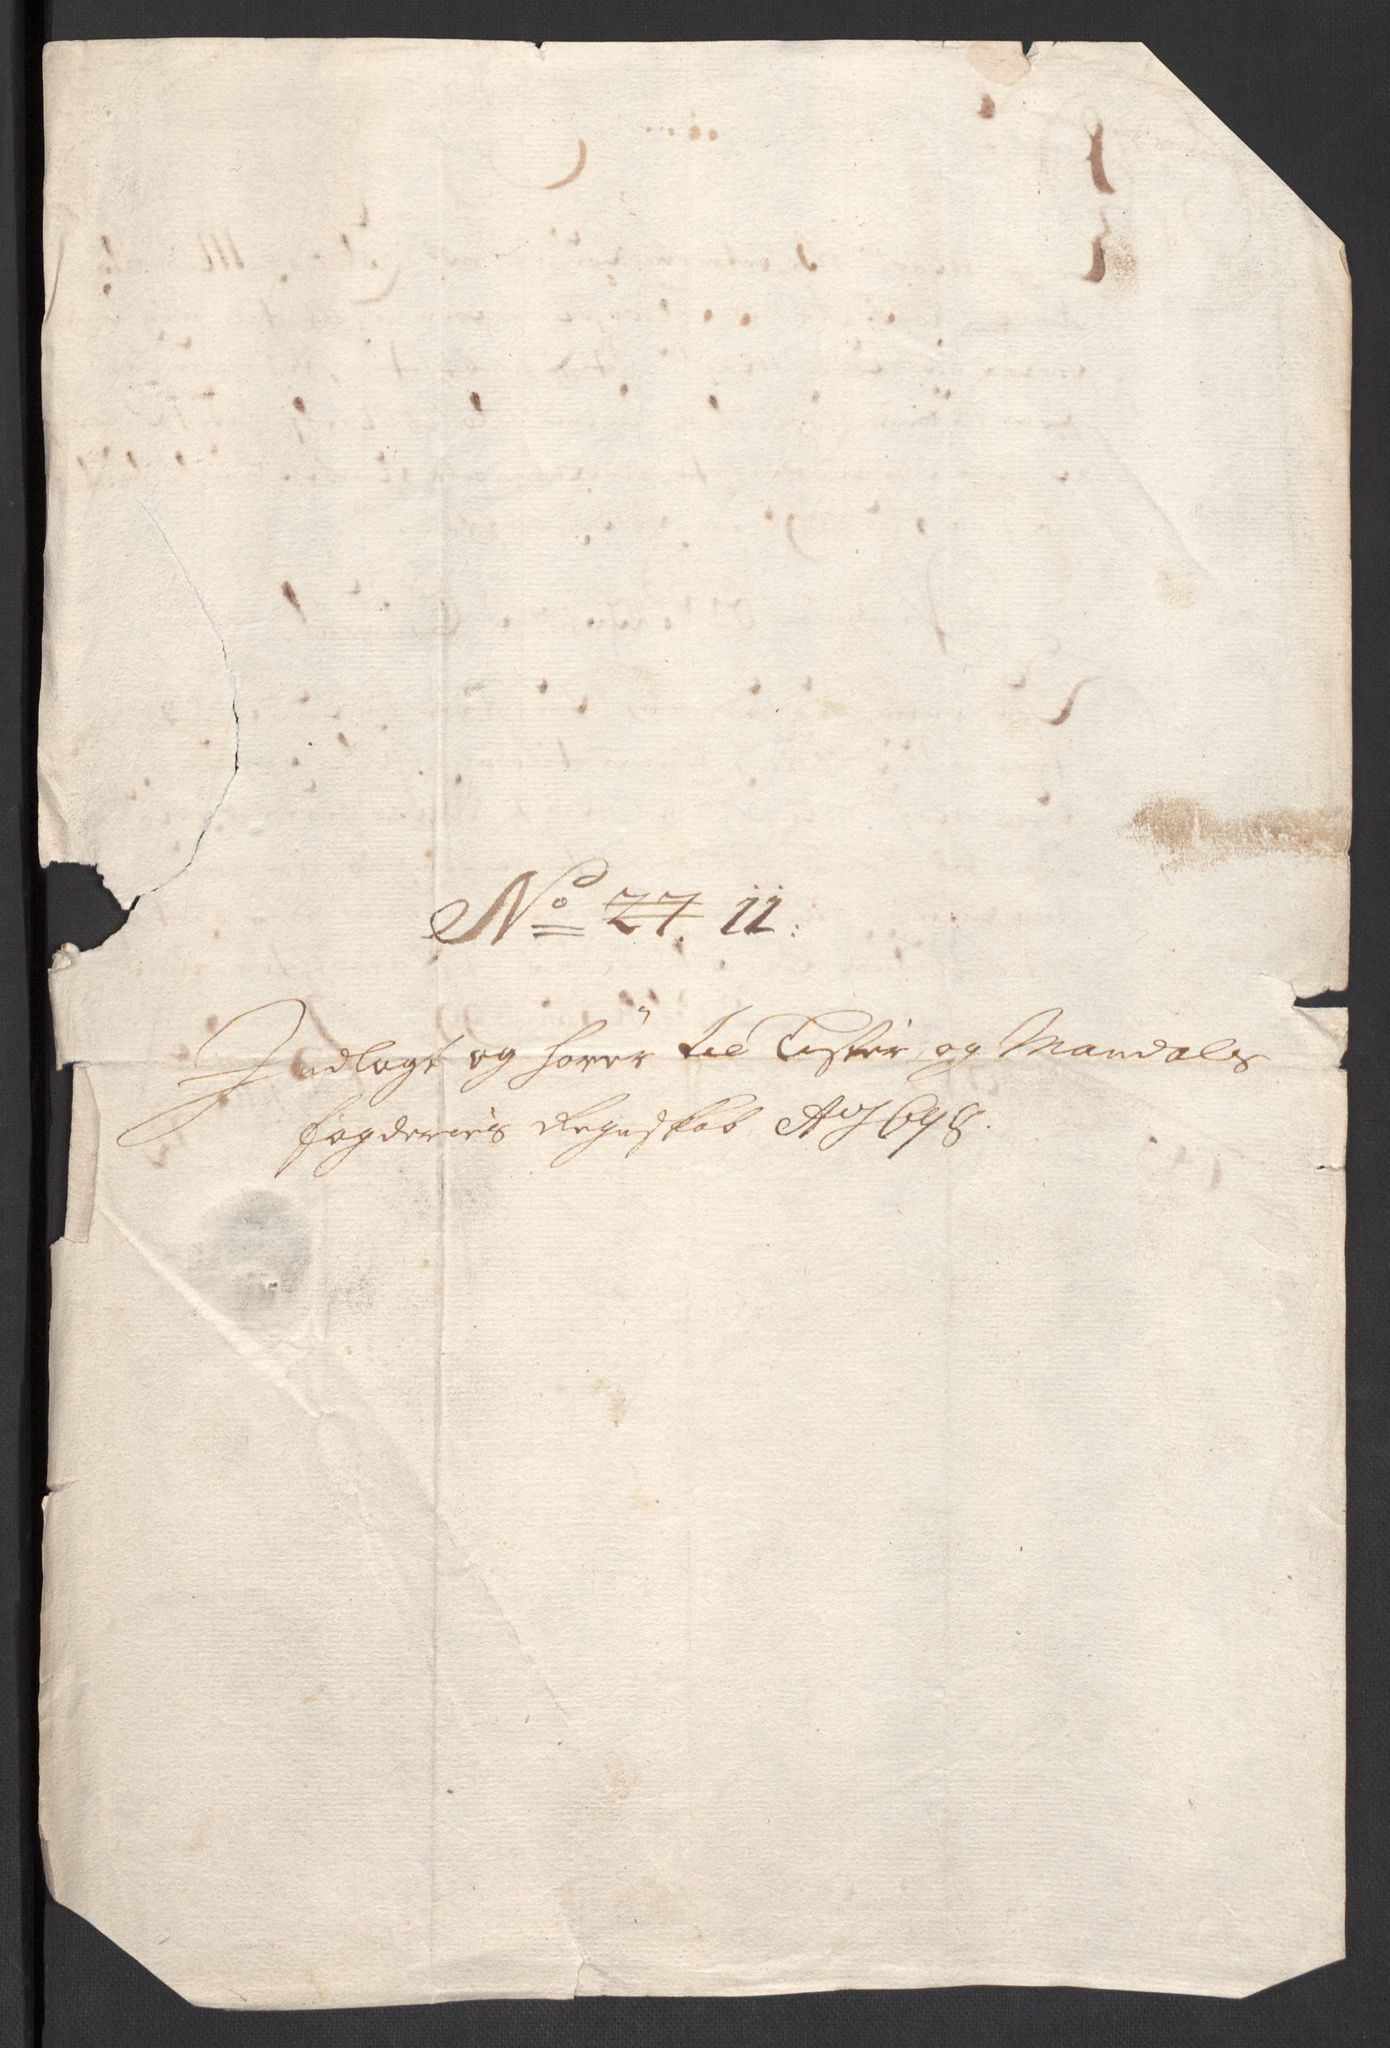 No 27. 11:
Indlagt og hører til Lister og Mandals
fogderies Regnskab Ao 1698.